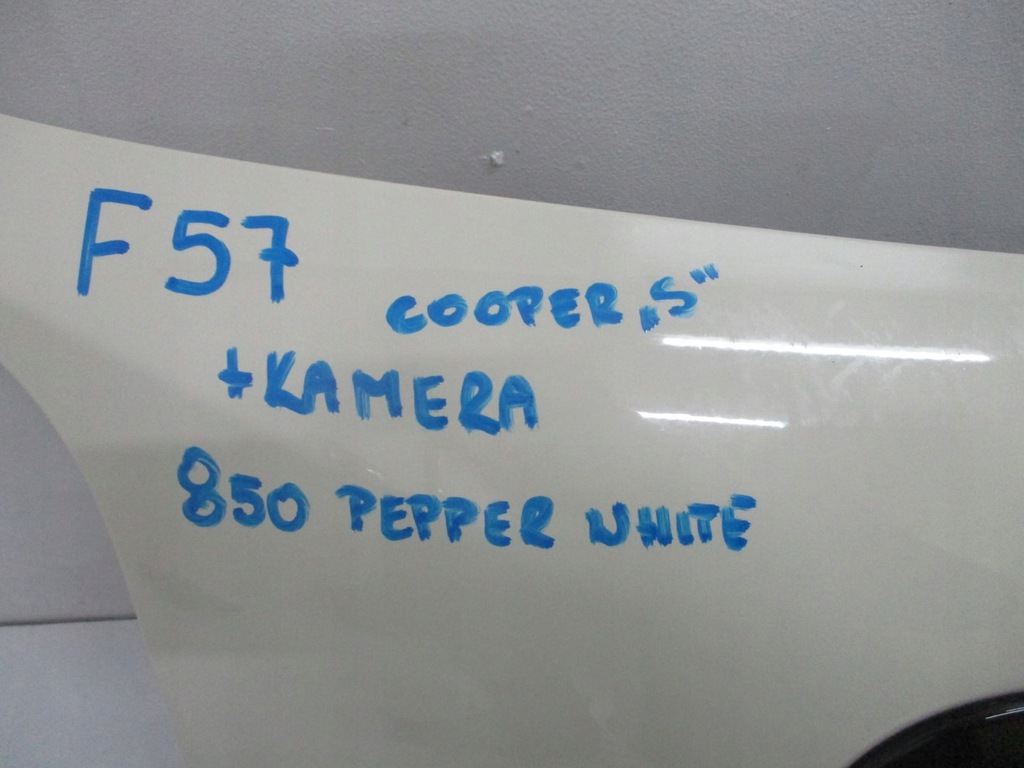 F57
COOPER „S"
+KAMERA
850 PEPPER WHITE